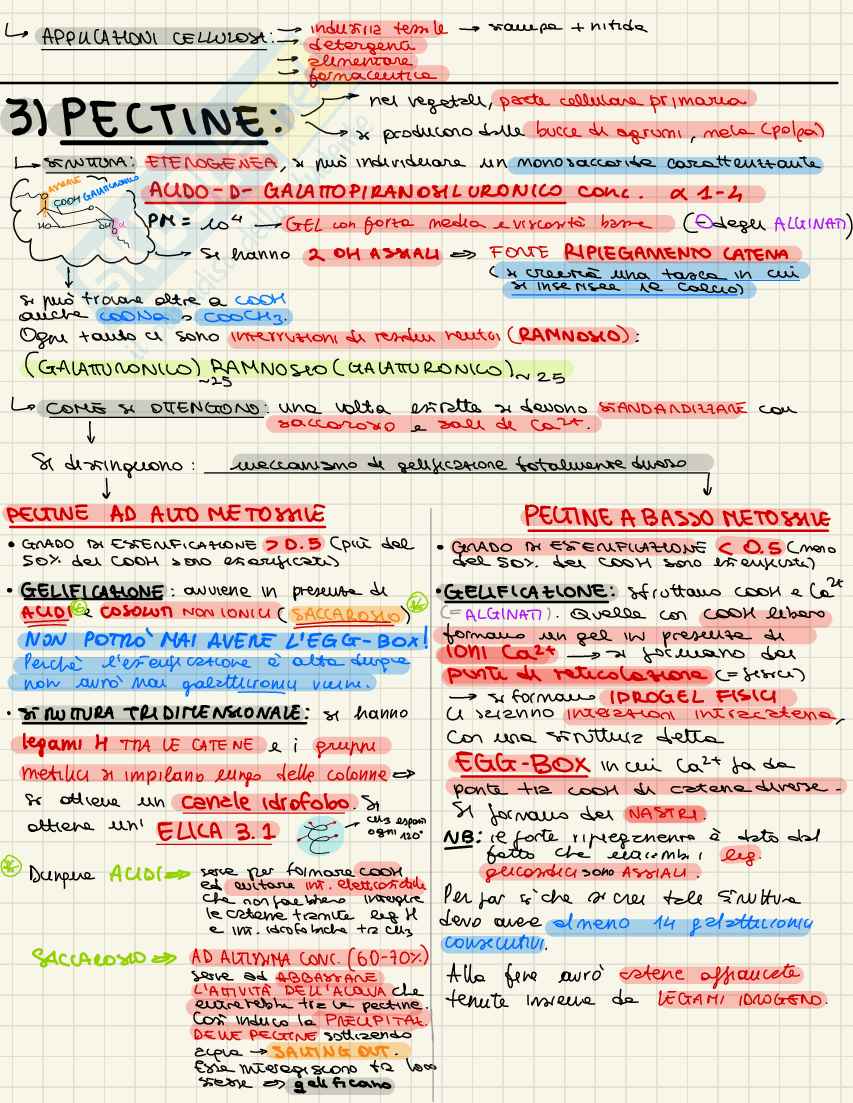 APPLICAZIONI CELLULOSA: → industria tessile → stampa + nitida
→ detergenti
→ alimentare
→ farmaceutica
3) PECTINE:
→ nei vegetali, parete cellulare primaria
→ si producono dalle bucce di agrumi, mela (polpa)
STRUTTURA: ETEROGENEA, si può individuare un monosaccaride caratterizzante
ACIDO-D-GALATTOPIRANOSILURONICO conc. α 1-4
COOH GALATTURONICO
HO
PM = 10⁴ → GEL con forza media e viscosità bassa (⊖ degli ALGINATI)
→ Si hanno 2 OH ASSIALI ⇒ FORTE RIPIEGAMENTO CATENA
(si creerà una tasca in cui
si inserisce il calcio)
si può trovare oltre a COOH
anche COONa o COOCH3.
Ogni tanto ci sono interruzioni di residui neutri (RAMNOSIO):
(GALATTURONICO)~25 RAMNOSIO (GALATTURONICO)~25
COME SI OTTENGONO: una volta estratte si devono STANDARDIZZARE con
saccarosio e sali di Ca²⁺.
Si distinguono: meccanismo di gelificazione totalmente diverso
PECTINE AD ALTO METOSSILE
• GRADO DI ESTERIFICAZIONE > 0.5 (più del
50% dei COOH sono esterificati)
• GELIFICAZIONE: avviene in presenza di
ACIDI e COSOLUTI NON IONICI (SACCAROSIO)
NON POTRÒ MAI AVERE L'EGG-BOX!
Perchè l'esterificazione è alta dunque
non avrò mai galatturonici vicini.
• STRUTTURA TRIDIMENSIONALE: si hanno
legami H TRA LE CATENE e i gruppi
metilici si impilano lungo delle colonne ⇒
Si ottiene un canale idrofobo. Si
ottiene un' ELICA 3.1
→ CH3 esposti
ogni 120°
Dunque ACIDI ⇒ serve per formare COOH
ed evitare int. elettrostatiche
che non farebbero interagire
le catene tramite leg H
e int. idrofobiche tra CH3
SACCAROSIO ⇒ AD ALTISSIMA CONC. (60-70%)
serve ad ABBASSARE
L'ATTIVITÀ DELL'ACQUA che
entrerebbe tra le pectine.
Così induco la PRECIPITAZ.
DELLE PECTINE sottraendo
acqua → SALTING OUT.
Esse interagiscono tra loro
stesse ⇒ gelificano
PECTINE A BASSO METOSSILE
• GRADO DI ESTERIFICAZIONE < 0.5 (meno
del 50% dei COOH sono esterificati)
• GELIFICAZIONE: sfruttano COOH e Ca²⁺
(= ALGINATI). Quelle con COOH libero
formano un gel in presenza di
IONI Ca²⁺ → si formano dei
punti di reticolazione (= fisici)
→ si formano IDROGEL FISICI
Ci saranno interazioni intracatena,
con una struttura detta
EGG-BOX in cui Ca²⁺ fa da
ponte tra COOH di catene diverse.
Si formano dei NASTRI.
NB: il forte ripiegamento è dato dal
fatto che entrambi i leg.
glicosidici sono ASSIALI.
Per far sì che si crei tale struttura
devo avere almeno 14 galatturonici
consecutivi.
Alla fine avrò catene affiancate
tenute insieme da LEGAMI IDROGENO.